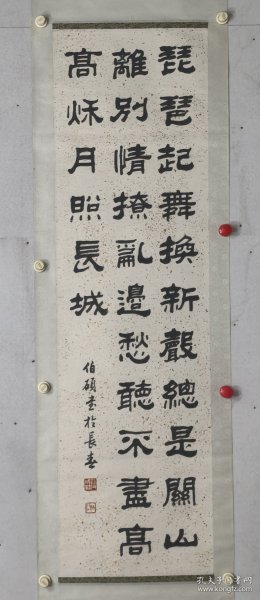 琵琶起舞換新聲總是關山
離別情撩亂邊愁聽不盡高
高秌月照長城
伯碩書於長春
孔夫子旧书网